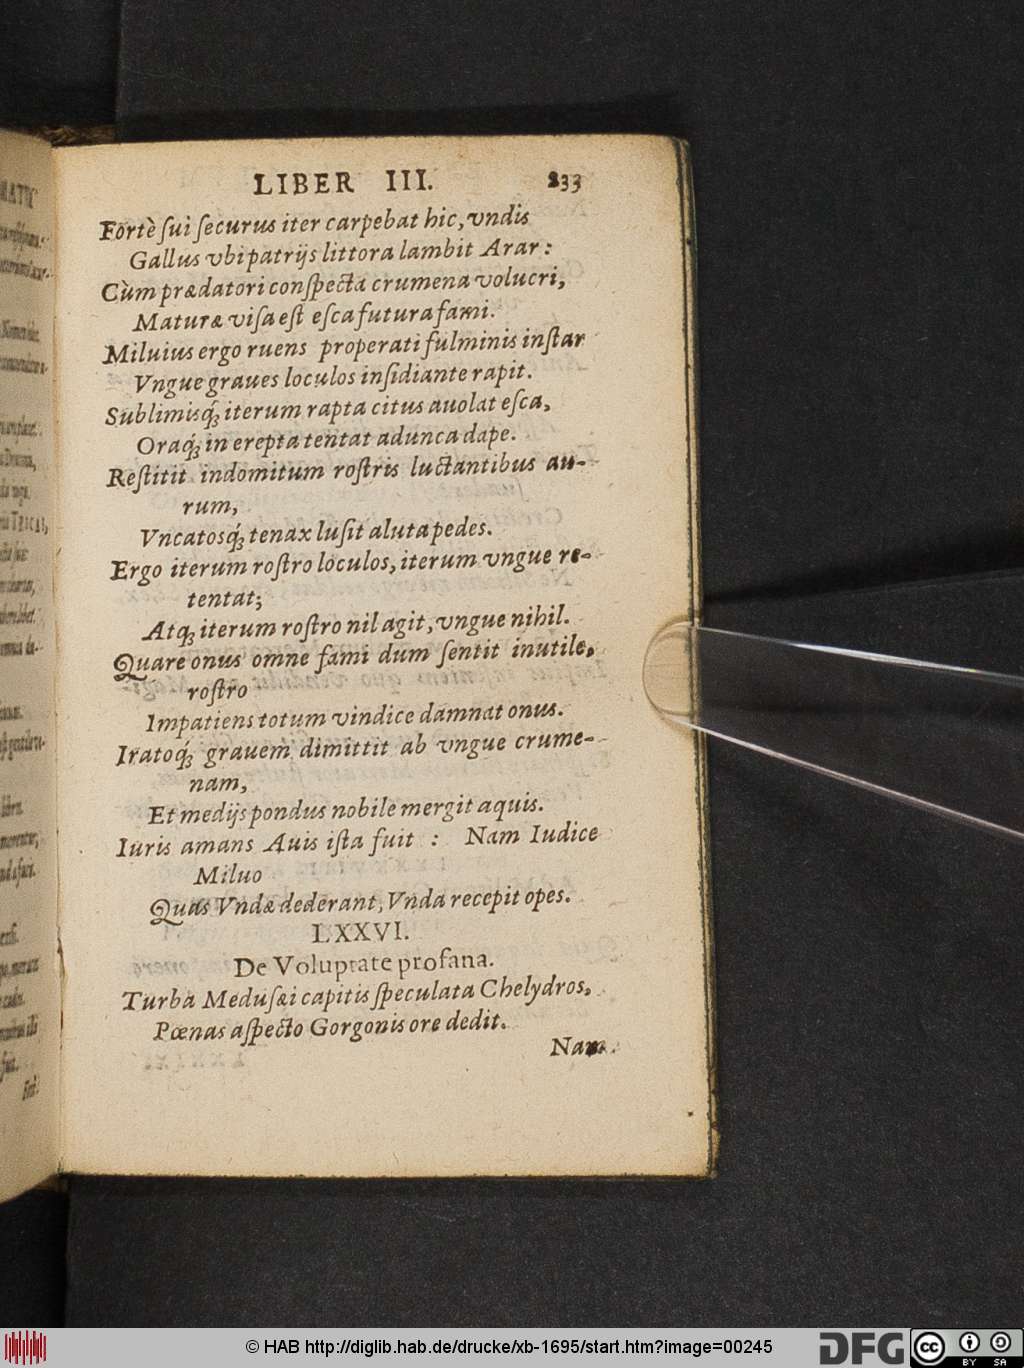 LIBER III. 233
Fortè ſui ſecurus iter carpebat hic, vndis
Gallus vbi patrijs littora lambit Arar:
Cùm prædatori conſpecta crumena volucri,
Maturæ viſa eſt eſca futura fami.
Miluius ergo ruens properati fulminis inſtar
Vngue graues loculos inſidiante rapit.
Sublimisq́; iterum rapta citus auolat eſca,
Oraq́; in erepta tentat adunca dape.
Reſtitit indomitum roſtris luctantibus au-
rum,
Vncatosq́; tenax luſit aluta pedes.
Ergo iterum roſtro loculos, iterum vngue re-
tentat;
Atq; iterum roſtro nil agit, vngue nihil.
Quare onus omne fami dum ſentit inutile,
roſtro
Impatiens totum vindice damnat onus.
Iratoq́; grauem dimittit ab vngue crume-
nam,
Et medijs pondus nobile mergit aquis.
Iuris amans Auis iſta fuit : Nam Iudice
Miluo
Quas Vndæ dederant, Vnda recepit opes.
LXXVI.
De Voluptate profana.
Turba Meduſæi capitis ſpeculata Chelydros,
Pœnas aſpecto Gorgonis ore dedit.
Nam
© HAB http://diglib.hab.de/drucke/xb-1695/start.htm?image=00245
DFG
cc
BY SA